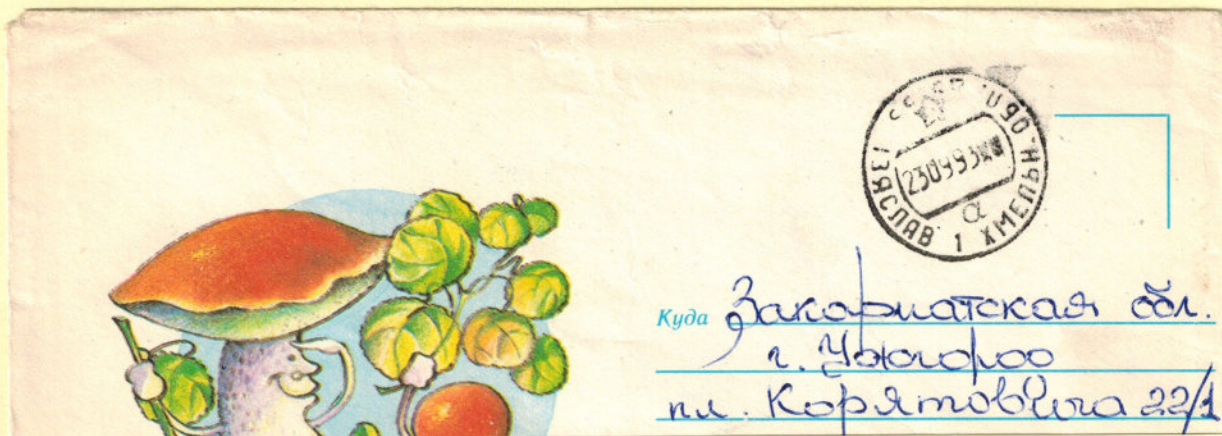 230993
ІЗЯСЛАВ 1 ХМЕЛЬН. ОБЛ.
а
Куда Закарпатская обл.
г. Ужгород
пл. Корятовича 22/1